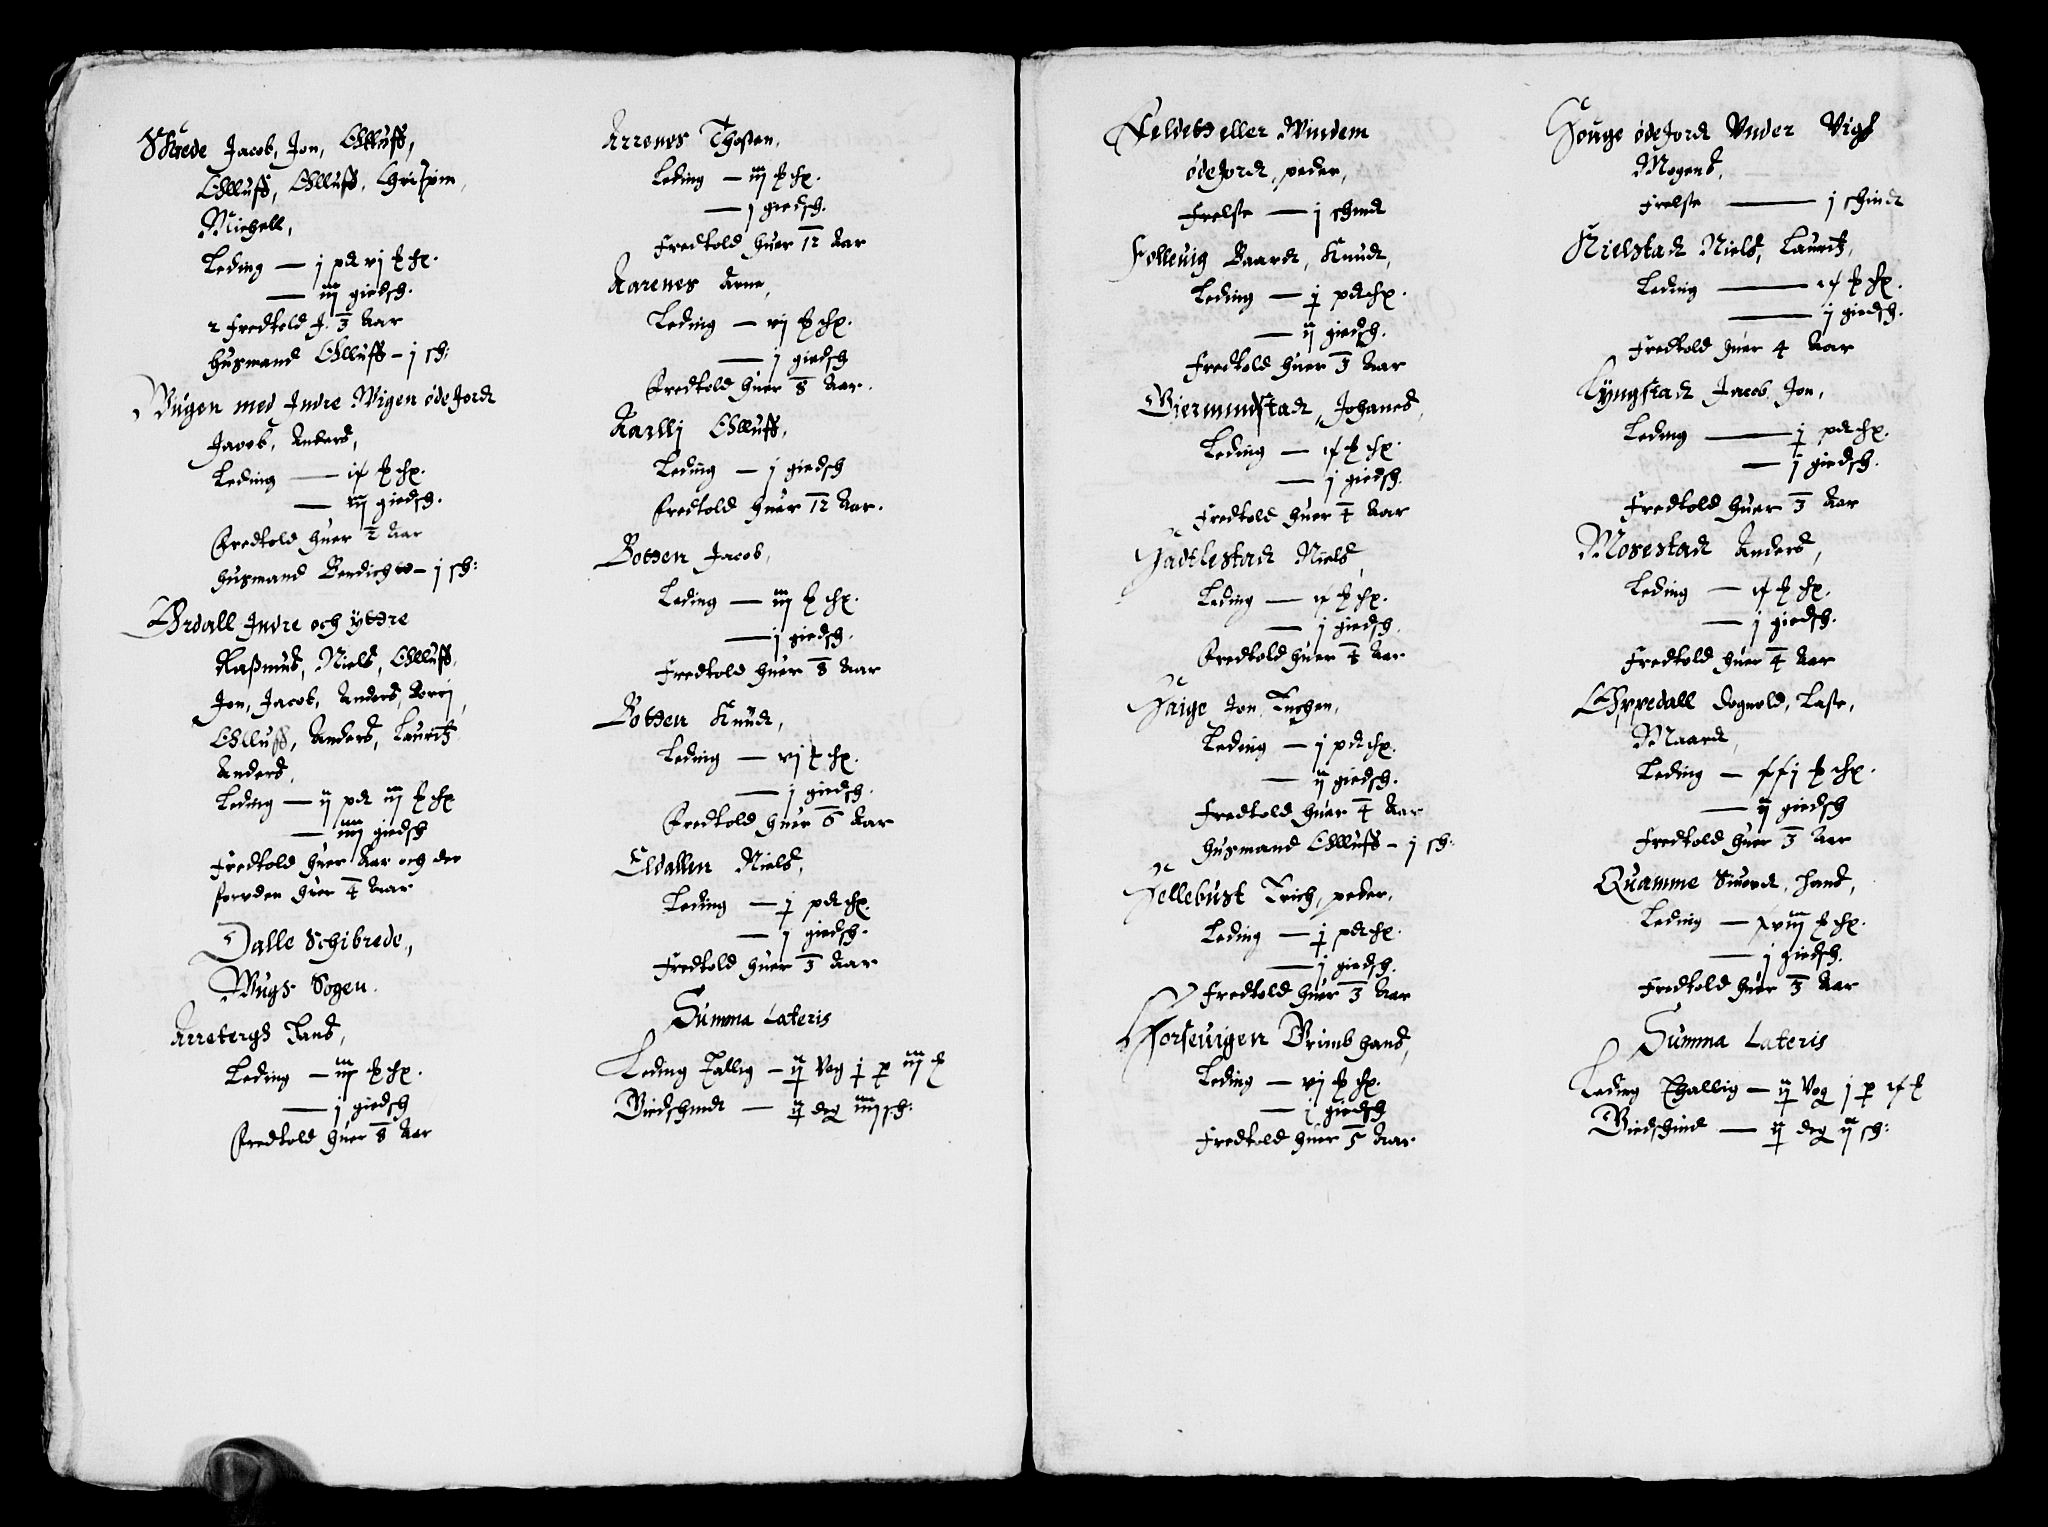 Schrede Jacob, Jon, Olluff,
Olluff, Olluff, Chrispin,
Michell,
Leding — j pd vj ℔ sp.
— iij giedsch.
2 Fredtold J. 3 Aar
Husmand Olluff – j sch:
Wugen med Indre Wigen øde Jord
Jacob, Anders,
Leding — ix ℔ sp.
— iij giedsch.
Fredtold huer 2 Aar
Husmand Bendich – j sch:
Ordall Indre och yttre
Rasmus, Niels, Olluff,
Jon, Jacob, Anders,
Olluff, Anders, Lauritz
Anders,
Leding — ij pd iij ℔ sp
— iiij giedsch
Fredtold huer Aar och der
forvden huer 4 Aar
Dalle Schibrede,
Wugs Sogen.
Arrebergs Land,
Leding — iij ℔ sp.
— j giedsch
Fredtold huer 8 Aar
Arrenes Thosten,
Leding — iij ℔ sp.
— j giedsch.
Fredtold huer 12 Aar
Aarenes Arne,
Leding — vj ℔ sp.
— j giedsch
Fredtold huer 8 Aar.
Aarllj Olluff,
Leding — j giedsch
Fredtold huer 12 Aar.
Botten Jacob,
Leding — iij ℔ sp.
— j giedsch.
Fredtold huer 8 Aar
Botten Knud,
Leding — vj ℔ sp.
— j giedsch.
Fredtold huer 6 Aar
Eldallen Niels,
Leding — j pd sp.
— j giedsch.
Fredtold huer 3 Aar
Summa Lateris
Leding Tallig — ij Vog j p iij ℔
Giedschind — ij deg iiij sch:
Feldett eller Windem
øde Jord, peder,
Frelse — j schind
Follevig Baard, Knud,
Leding — j pd sp.
— ij giedsch.
Fredtold huer 3 Aar
Giermundstad, Johanes,
Leding — ix ℔ sp.
— j giedsch.
Fredtold huer 4 Aar
Hadtlestad Niels,
Leding — ix ℔ sp.
— j giedsch.
Fredtold huer 4 Aar
Haige Jon,
Leding — j pd sp.
— ij giedsch.
Fredtold huer 4 Aar
Husmand Olluff – j sch:
Hellebust Erich, peder,
Leding — j pd sp.
— j giedsch.
Fredtold huer 3 Aar
Horseuigen Grimb hans,
Leding — vj ℔ sp.
— j giedsch
Fredtold huer 5 Aar
Houge øde Jord Vnder Vigs
Mogens,
Frelse — j schind
Nielstad Niels, Lauritz,
Leding — ix ℔ sp.
— ij giedsch.
Fredtold huer 4 Aar
Lyngstad Jacob, Jon,
Leding — j pd sp.
— j giedsch.
Fredtold huer 3 Aar
Mosestad Anders,
Leding — ix ℔ sp.
— j giedsch.
Fredtold huer 4 Aar
Oppedall Rognold, Lasse,
Maard,
Leding — xxj ℔ sp.
— ij giedsch
Fredtold huer 3 Aar
Quamme Siuerd, Hans,
Leding — xviij ℔ sp.
— j giedsch.
Fredtold huer 3 Aar
Summa Lateris
Leding Thallig — ij Vog j p ix ℔
Giedschind — ij deg ij sch: